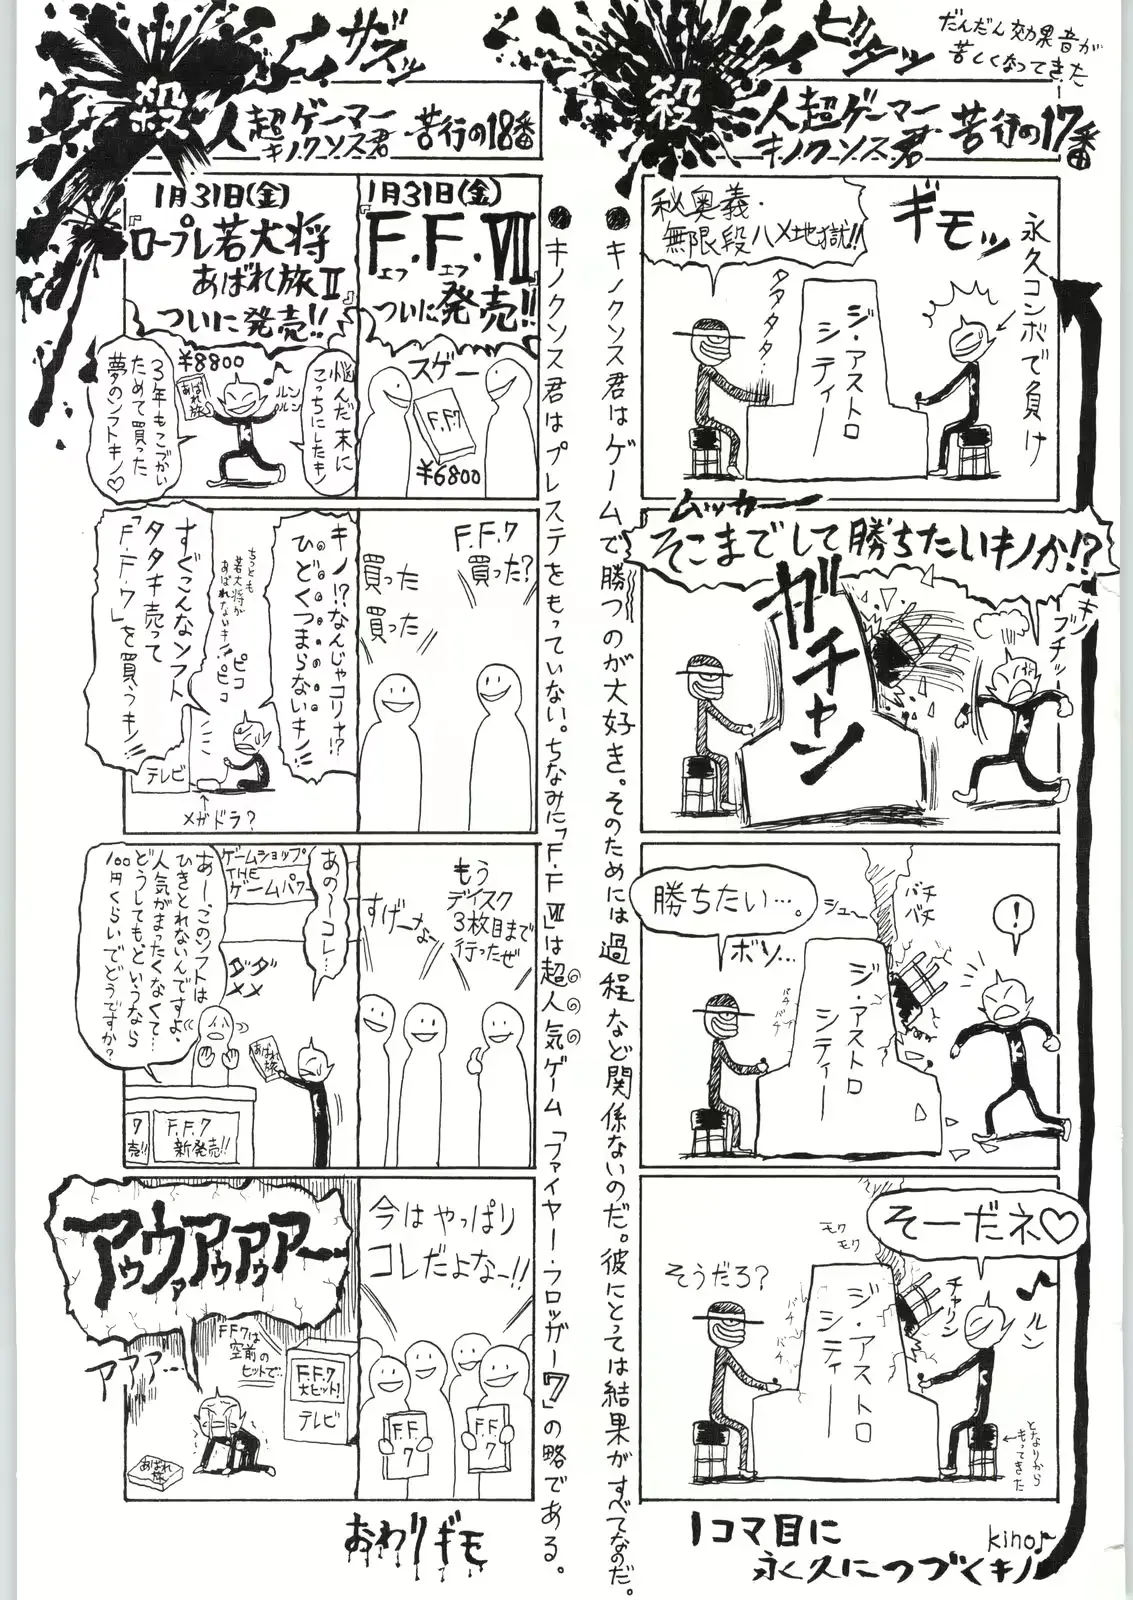 だんだん効果音が
苦しくなってきた
ビシャッ
殺人超ゲーマー
キノクソス君
苦行の17番
秘奥義・
無限段ハメ地獄!!
ギモッ
永久コンボで負け
タタタタ…
ジ・アストロ
シティー
ムッカー
そこまでして勝ちたいキノか!?
ガチャン
ブチッ
キノ
勝ちたい…。
ボソ…
シュ〜
バチ
バチ
バチ
バチ
!
ジ・アストロ
シティー
K
そーだネ♡
そうだろ?
モク
モク
バチ
バチ
チャリン
ルン
♪
ジ・アストロ
シティー
となりから
もってきた
1コマ目に
永久につづくキノ
kino♪
●キノクソス君はゲームで勝つのが大好き。そのためには過程など関係ないのだ。彼にとっては結果がすべてなのだ。
ザスッ
殺人超ゲーマー
キノクソス君
苦行の18番
1月31日(金)
『F.F.Ⅶ』
エフ エフ
ついに発売!!
スゲー
F.F.7
¥6800
1月31日(金)
『ロープレ若大将
あばれ旅Ⅱ』
ついに発売!!
悩んだ末に
こっちにしたキノ
ルン
ルン
¥8800
あばれ旅
3年もこづかい
ためて買った
夢のソフトキノ♡
F.F.7
買った?
買った
買った
キノ!?なんじゃコリャ!?
ひどくつまらないキノ!!
ちっとも
若大将が
あばれないキノ!!
ピコ
ピコ
すぐこんなソフト
タタキ売って
「F.F.7」を買うキノ!!
テレビ
メガドラ?
もう
ディスク
3枚目まで
行ったぜ
すげーなー
あの〜コレ…
ゲームショップ
THE
ゲームパワー
ダメ
ダメ
あー、このソフトは
ひきとれないんですよ、
人気がまったくなくて…
どうしても、というなら
100円くらいでどうですか?
あばれ
旅
7
売!!
F.F.7
新発売!!
今はやっぱり
コレだよなー!!
F.F.
7
F.F.
7
アゥウァアゥアゥアァアー
アアア…
FF7は
空前の
ヒットで…
F.F.7
大ヒット!
テレビ
あばれ
旅
おわりギモ
●キノクソス君はプレステをもっていない。ちなみに「F.F.Ⅶ」は超人気ゲーム「ファイヤー・フロッガー7」の略である。